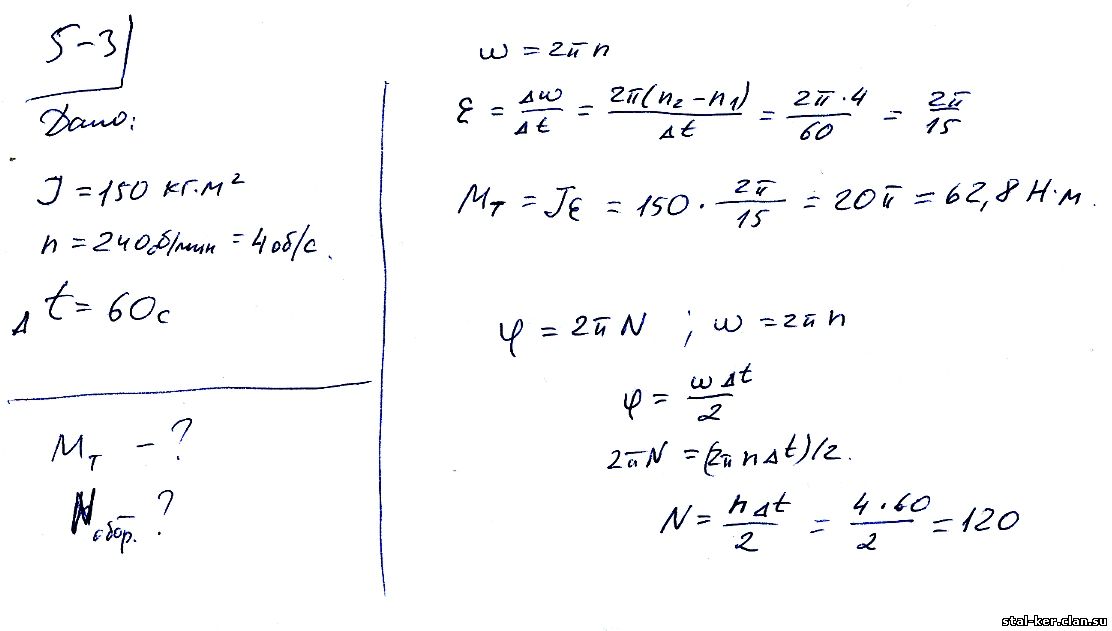 5-3
Дано:
J = 150 кг·м²
n = 240 об/мин = 4 об/с.
Δt = 60с
Mт - ?
Nобор. ?
ω = 2πn
ε = Δω/Δt = 2π(n₂-n₁)/Δt = 2π·4/60 = 2π/15
Mт = Jε = 150 · 2π/15 = 20π = 62,8 Н·м.
φ = 2πN ; ω = 2πn
φ = ωΔt/2
2πN = (2πnΔt)/2.
N = nΔt/2 = 4·60/2 = 120
stal-ker.clan.su